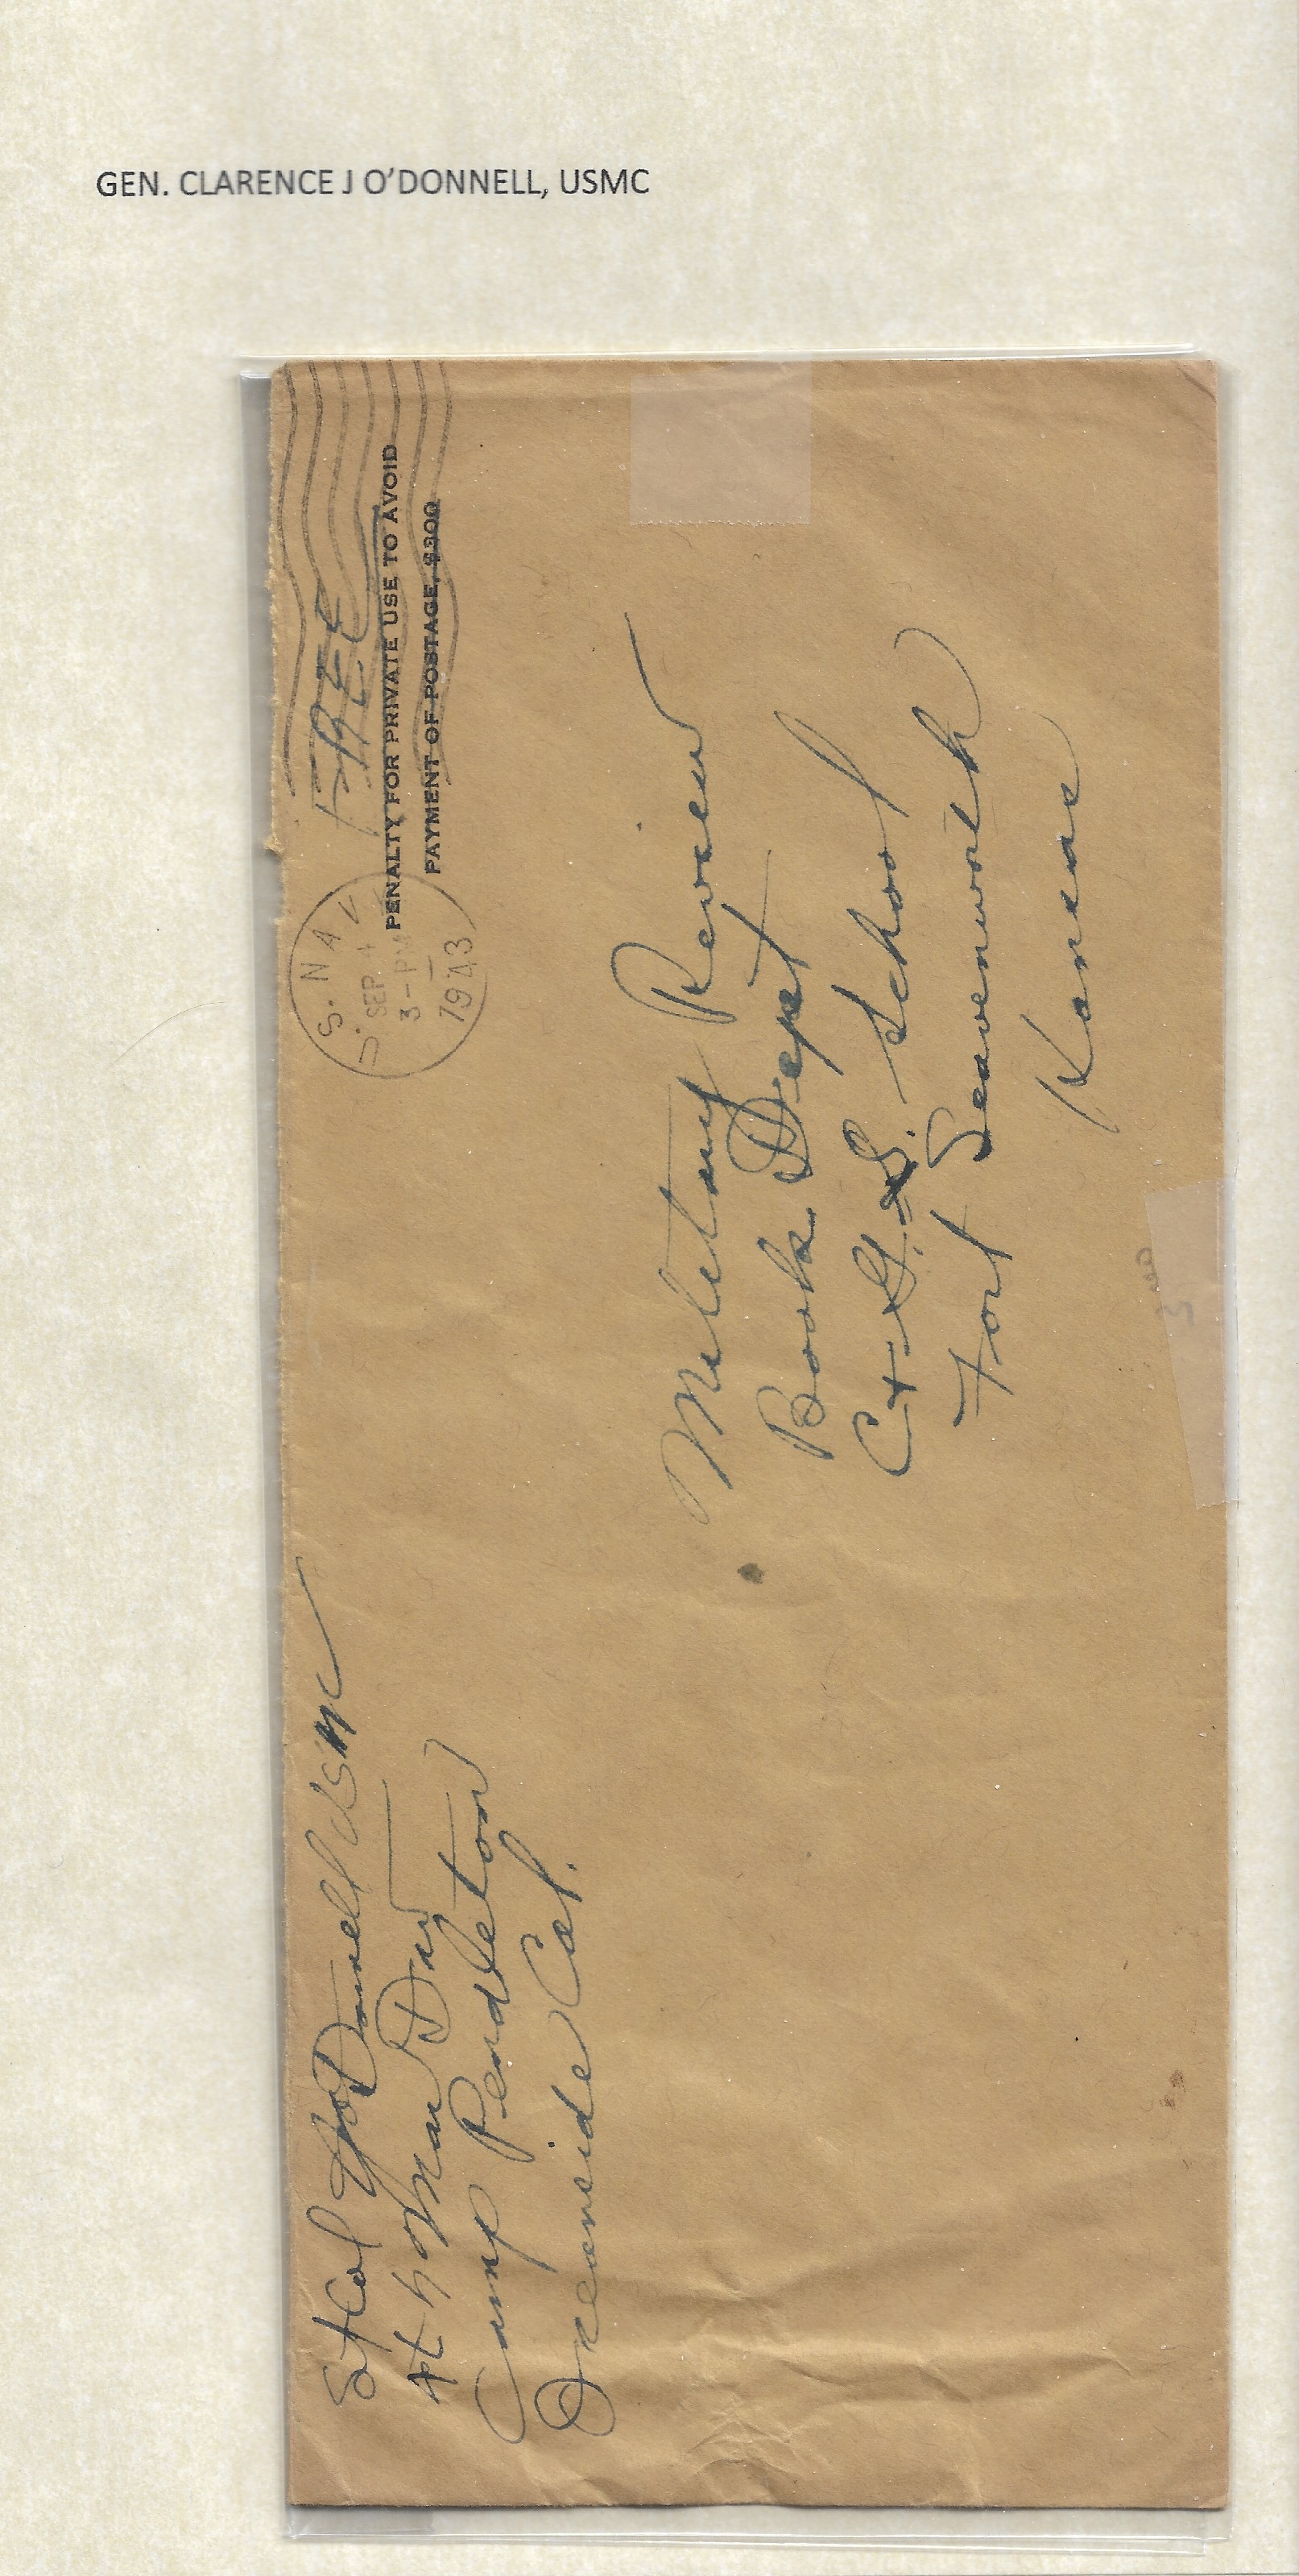 GEN. CLARENCE J O'DONNELL, USMC
Lt Col O'Donnell USMC
4th Mar Div
Camp Pendleton
Oceanside Cal.
U. S. NAV
SEP 4
3-PM
1943
FREE
PENALTY FOR PRIVATE USE TO AVOID
PAYMENT OF POSTAGE, $300
Military Review
Book Dept
C + G. S. School
Fort Leavenworth
Kansas